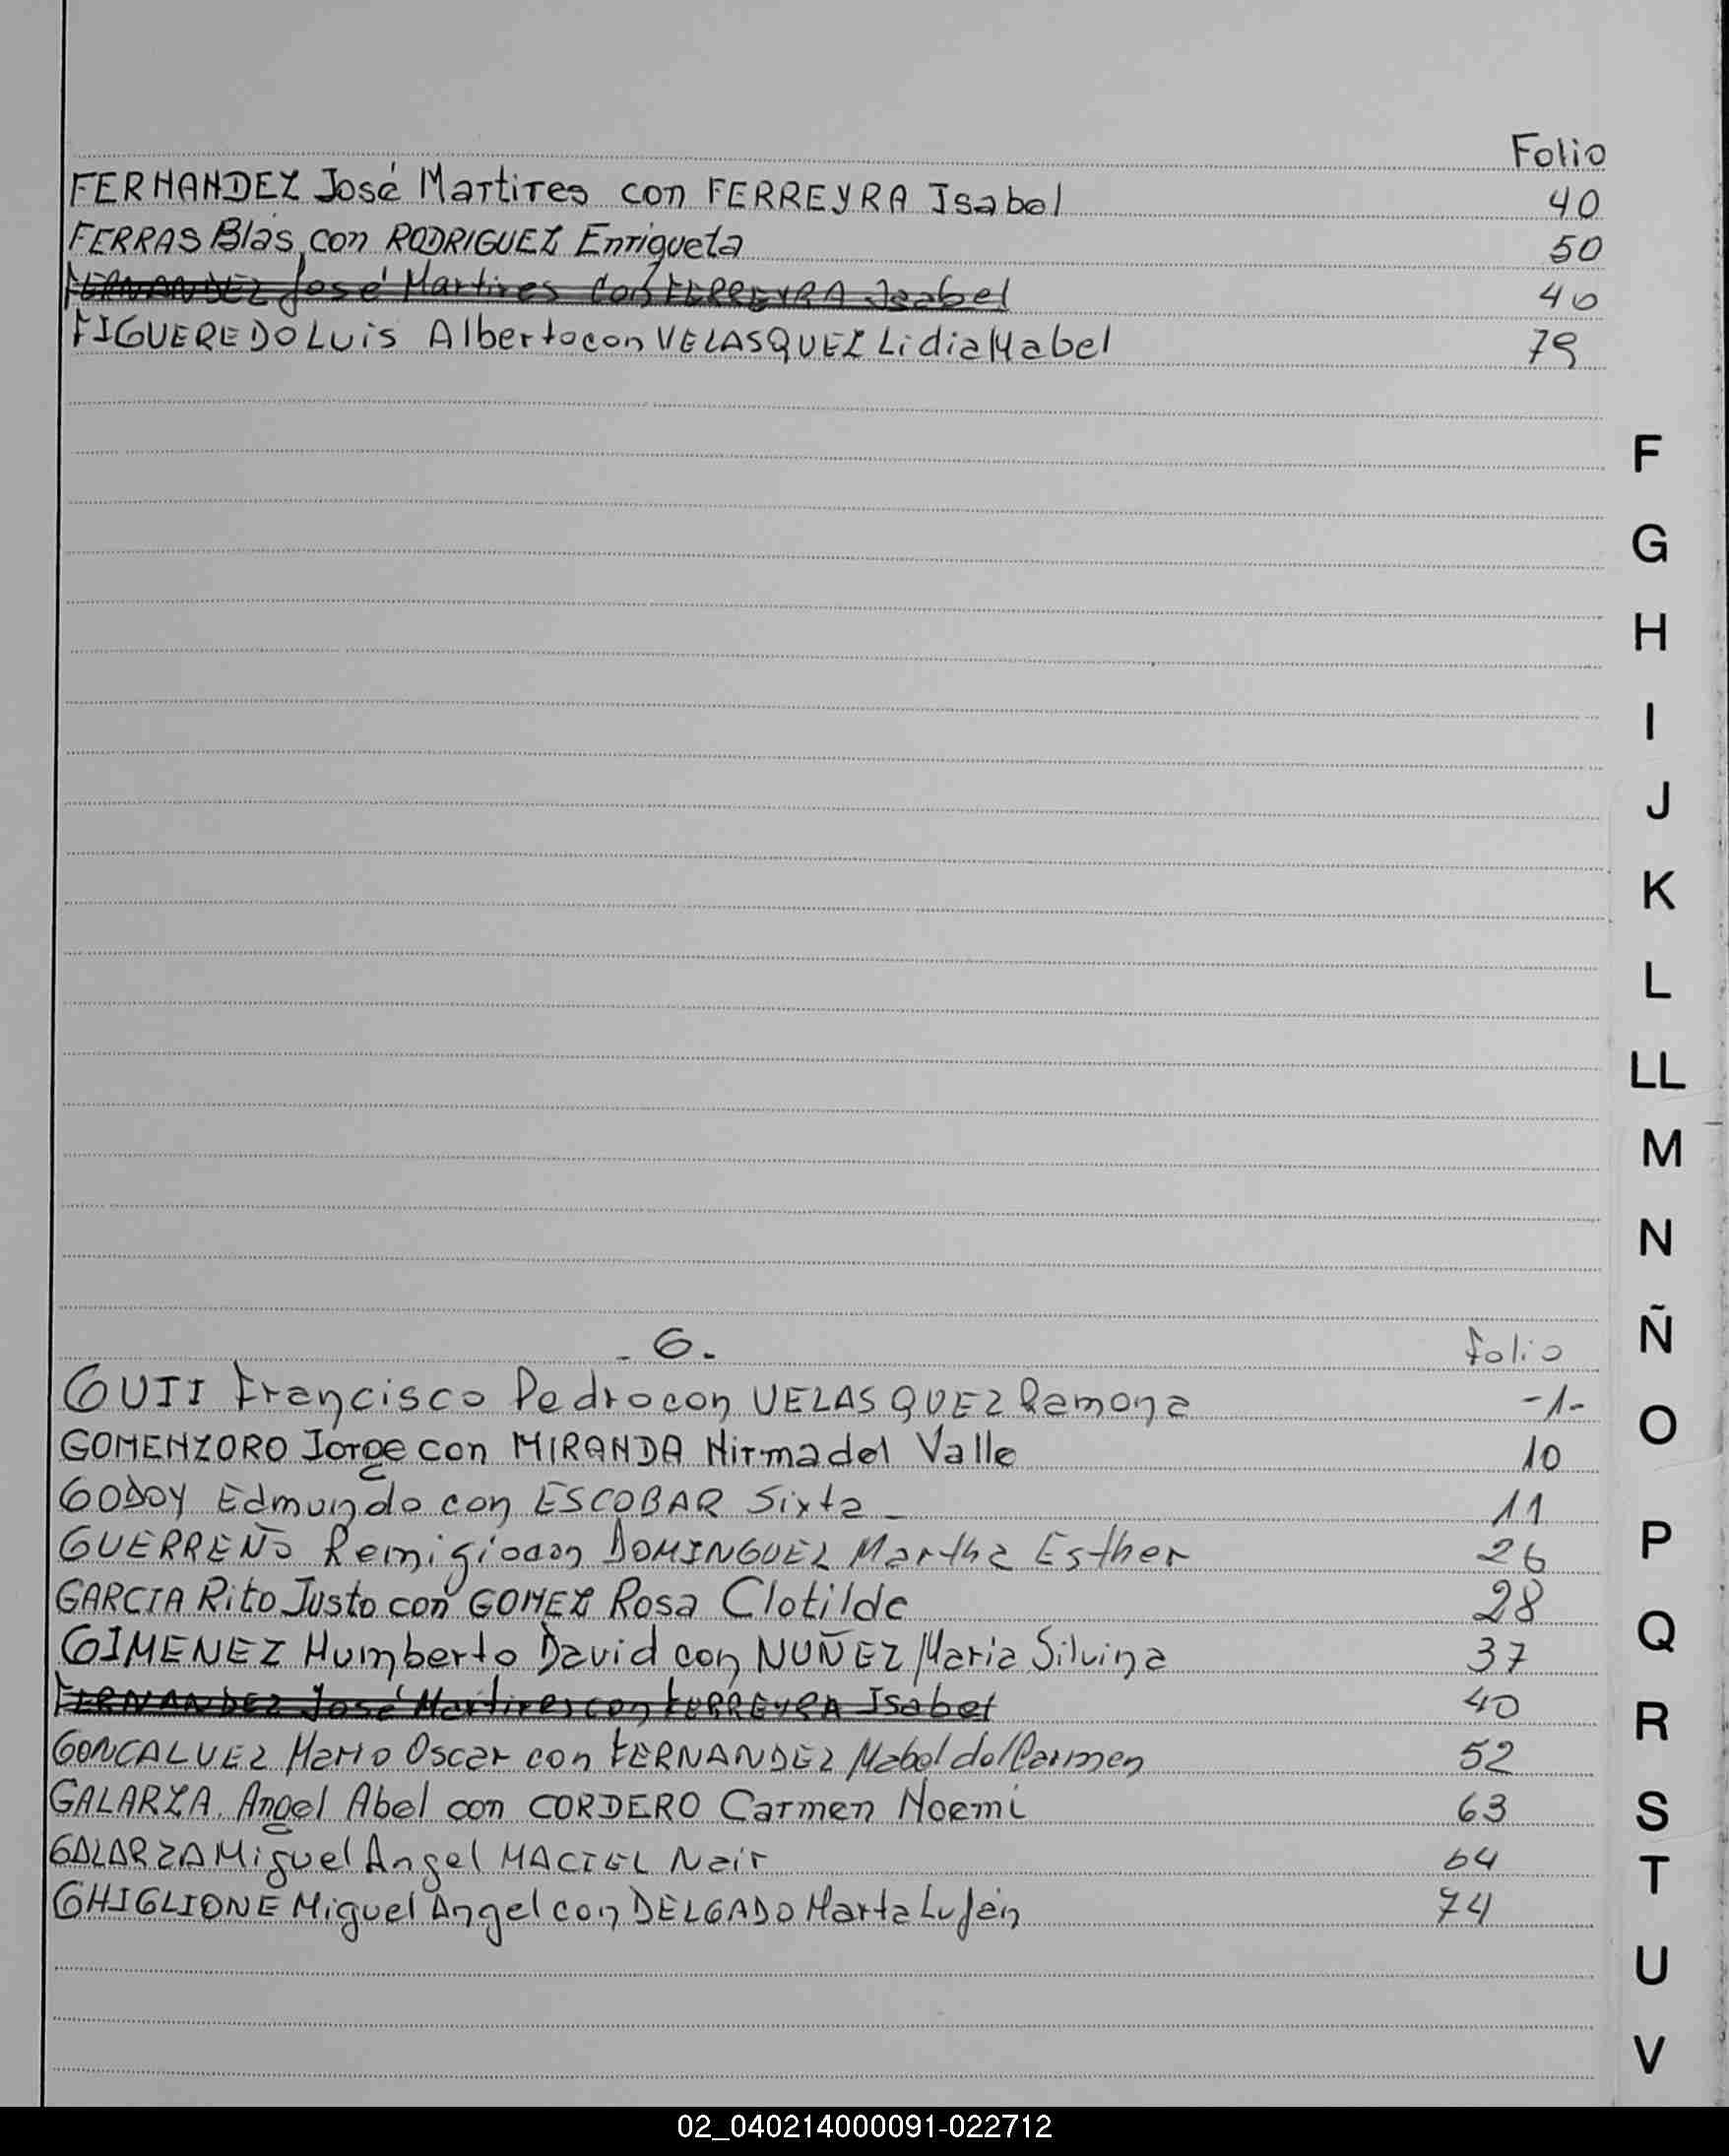 Folio
FERNANDEZ José Martires con FERREYRA Isabel 40
FERRAS Blás con RODRIGUEZ Enriqueta 50
FERNANDEZ José Martires con FERREYRA Isabel 40
FIGUEREDO Luis Alberto con VELASQUEZ Lidia Mabel 79
F
G
H
I
J
K
L
LL
M
N
Ñ
O
P
Q
R
S
T
U
V
. G. Folio
GUII Francisco Pedro con VELASQUEZ Ramona -1-
GOMENZORO Jorge con MIRANDA Mirma del Valle 10
GODOY Edmundo con ESCOBAR Sixta 11
GUERREÑO Remigio con DOMINGUEZ Martha Esther 26
GARCIA Rito Justo con GOMEZ Rosa Clotilde 28
GIMENEZ Humberto David con NUÑEZ Maria Silvina 37
FERNANDEZ José Martires con FERREYRA Isabel 40
GONCALVEZ Mario Oscar con FERNANDEZ Mabel del Carmen 52
GALARZA Angel Abel con CORDERO Carmen Noemi 63
GALARZA Miguel Angel MACIEL Nair 64
GHIGLIONE Miguel Angel con DELGADO Marta Luján 74
02_040214000091-022712